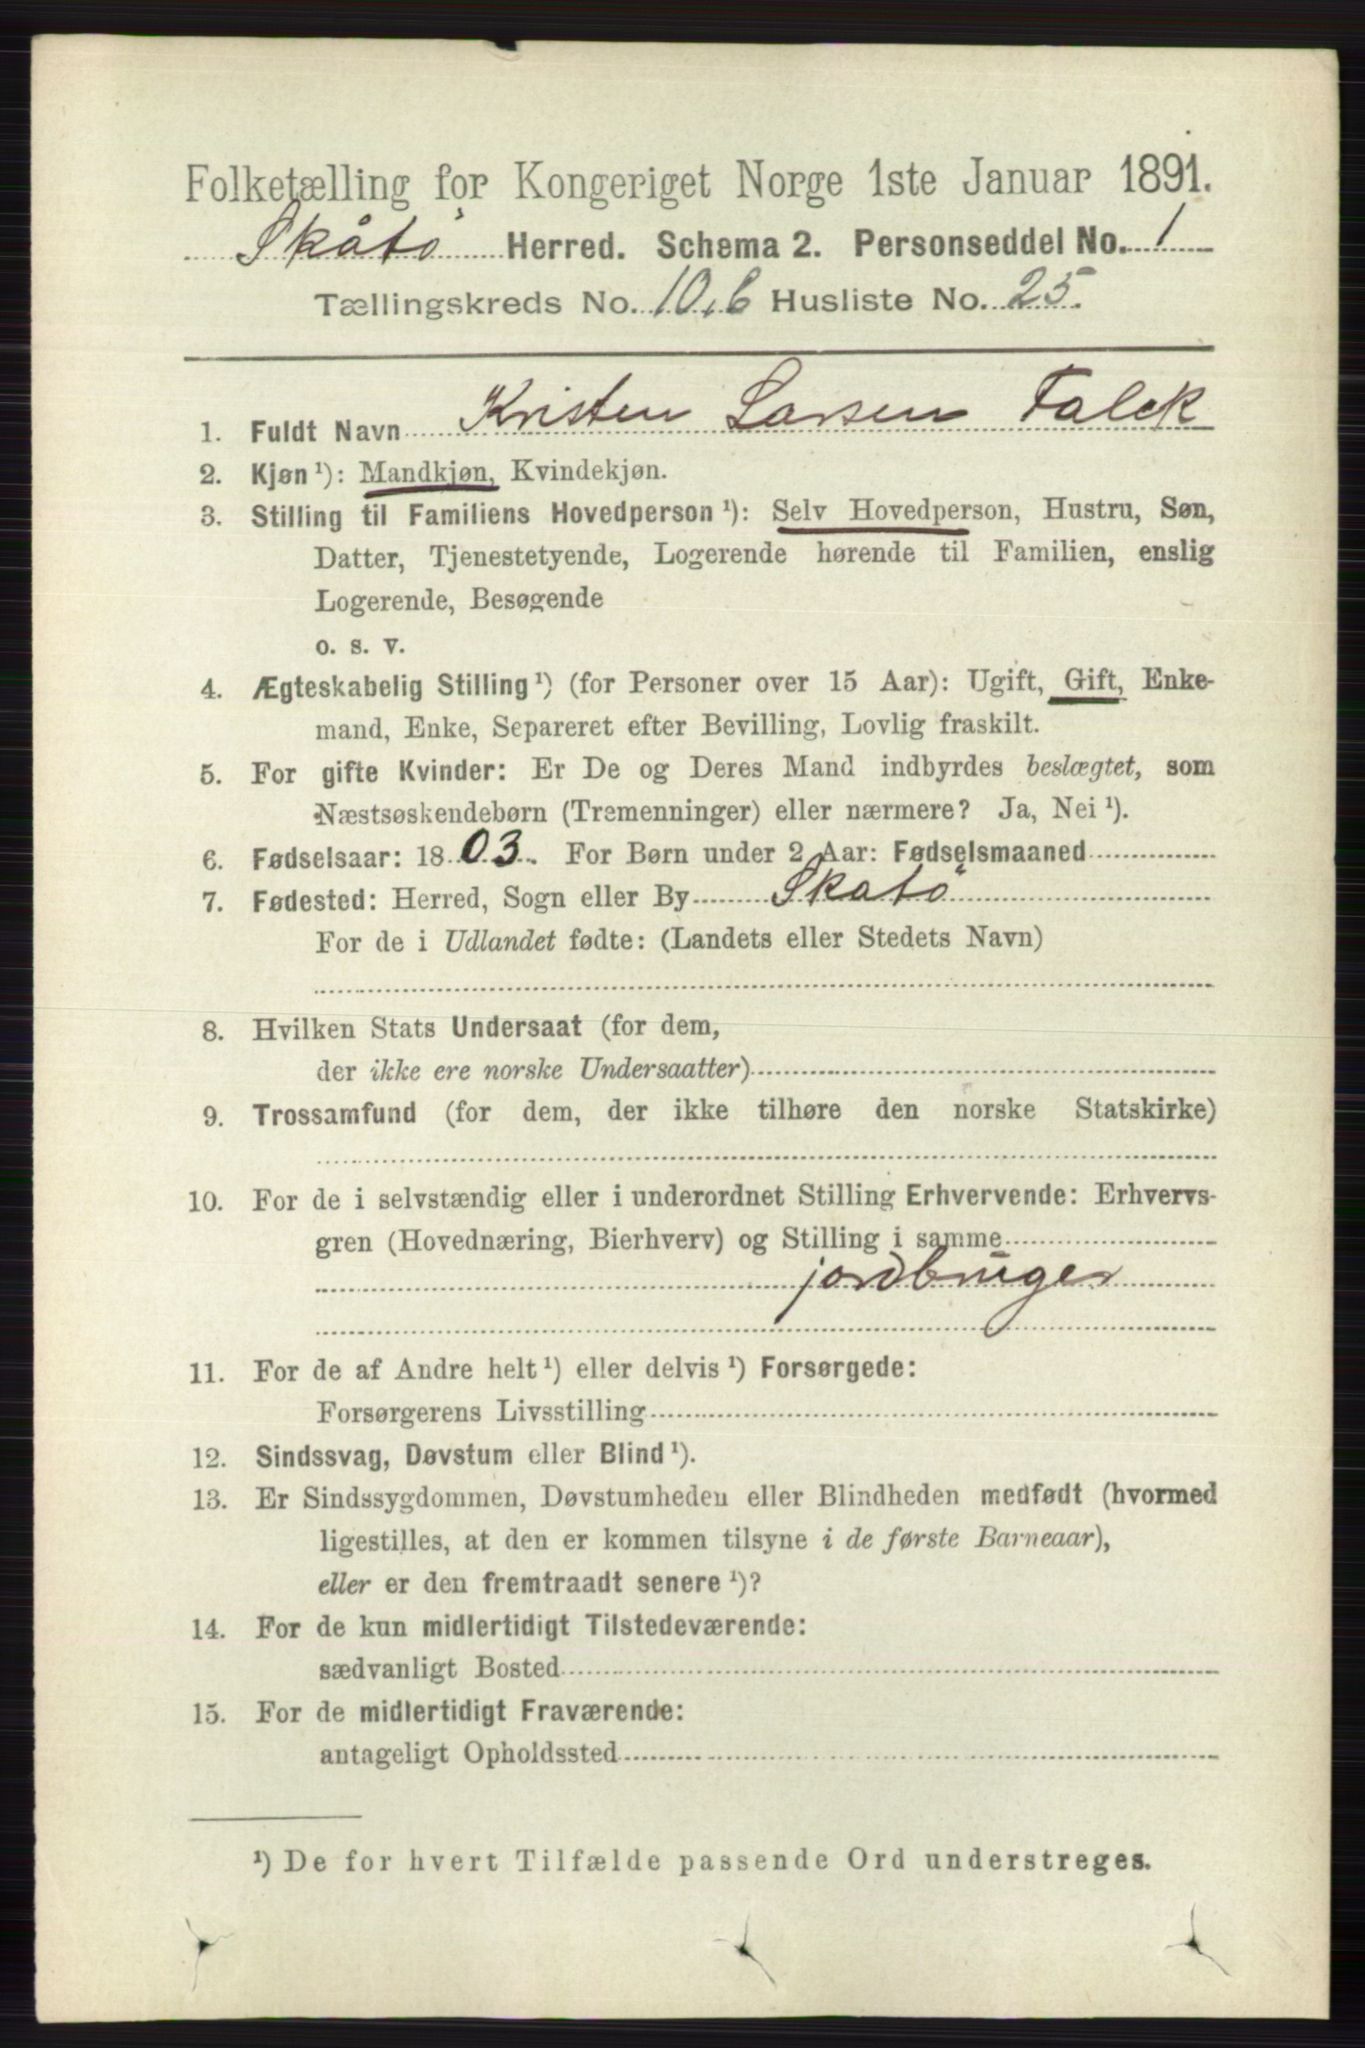 Folketælling for Kongeriget Norge 1ste Januar 1891.
Skåtö Herred. Schema 2. Personseddel No. 1
Tællingskreds No. 10,b Husliste No. 25.
1. Fuldt Navn Kristen Larsen Falck
2. Kjøn ¹): Mandkjøn, Kvindekjøn.
3. Stilling til Familiens Hovedperson ¹): Selv Hovedperson, Hustru, Søn,
Datter, Tjenestetyende, Logerende hørende til Familien, enslig
Logerende, Besøgende
o. s. v.
4. Ægteskabelig Stilling ¹) (for Personer over 15 Aar): Ugift, Gift, Enke-
mand, Enke, Separeret efter Bevilling, Lovlig fraskilt.
5. For gifte Kvinder: Er De og Deres Mand indbyrdes beslægtet, som
Næstsøskendebørn (Tremenninger) eller nærmere? Ja, Nei ¹).
6. Fødselsaar: 1803. For Børn under 2 Aar: Fødselsmaaned
7. Fødested: Herred, Sogn eller By Skatö
For de i Udlandet fødte: (Landets eller Stedets Navn)
8. Hvilken Stats Undersaat (for dem,
der ikke ere norske Undersaatter)
9. Trossamfund (for dem, der ikke tilhøre den norske Statskirke)
10. For de i selvstændig eller i underordnet Stilling Erhvervende: Erhvervs-
gren (Hovednæring, Bierhverv) og Stilling i samme
jordbruger
11. For de af Andre helt ¹) eller delvis ¹) Forsørgede:
Forsørgerens Livsstilling
12. Sindssvag, Døvstum eller Blind ¹).
13. Er Sindssygdommen, Døvstumheden eller Blindheden medfødt (hvormed
ligestilles, at den er kommen tilsyne i de første Barneaar),
eller er den fremtraadt senere ¹)?
14. For de kun midlertidigt Tilstedeværende:
sædvanligt Bosted
15. For de midlertidigt Fraværende:
antageligt Opholdssted
¹) De for hvert Tilfælde passende Ord understreges.